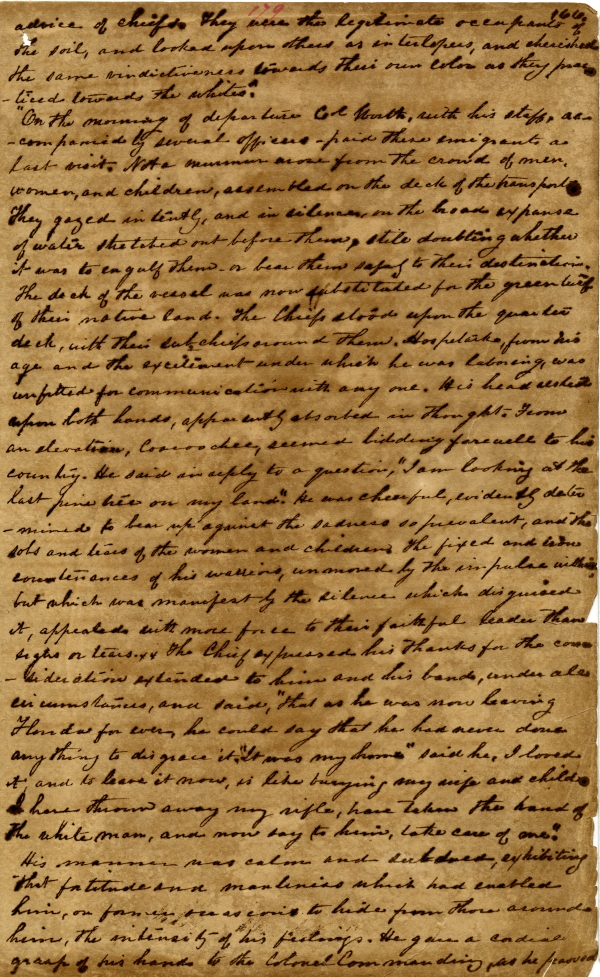 179
166
advice of chiefs. They were the legitimate occupants of
the soil, and looked upon others as interlopers, and cherished
the same vindictiveness towards their own color as they prac
-ticed towards the whites."
"On the morning of departure Col Worth, with his staff, ac-
-companied by several officers - paid these emigrants a
last visit. Not a murmur arose from the crowd of men,
women, and children, assembled on the deck of the transport.
They gazed intently, and in silence, on the broad expanse
of water stretched out before them, still doubting whether
it was to engulf them - or bear them safely to their destination.
The deck of the vessel was now substituted for the green turf
of their native land. The Chiefs stood upon the quarter
deck, with their sub chiefs around them. Hospetarke, from his
age and the excitement under which he was laboring, was
unfitted for communication with any one. His head rested
upon both hands, apparently absorbed in thought. From
an elevation, Coacoochee, seemed bidding farewell to his
country. He said in reply to a question, "I am looking at the
last pine tree on my land". He was cheerful, evidently deter
-mined to bear up against the sadness so prevalent, and the
sobs and tears of the women and children. The fixed and
countenances of his warriors, unmoved by the impulse within,
but which was manifest by the silence which disguised
it, appealed with more force to their faithful leader than
sighs or tears. xx The Chief expressed his thanks for the con
-sideration extended to him and his bands, under all
circumstances, and said, "that as he was now leaving
Florida for ever, he could say that he had never done
any thing to disgrace it. "It was my home" said he, I loved
it, and to leave it now, is like burying my wife and child.
I have thrown away my rifle, have taken the hand of
the white man, and now say to him, take care of me."
His manner was calm and subdued, exhibiting
that fortitude and manliness which had enabled
him, on former occasions to hide from those around
him, the intensity of his feelings. He gave a cordial
grasp of his hands to the Colonel Commanding, as he passed